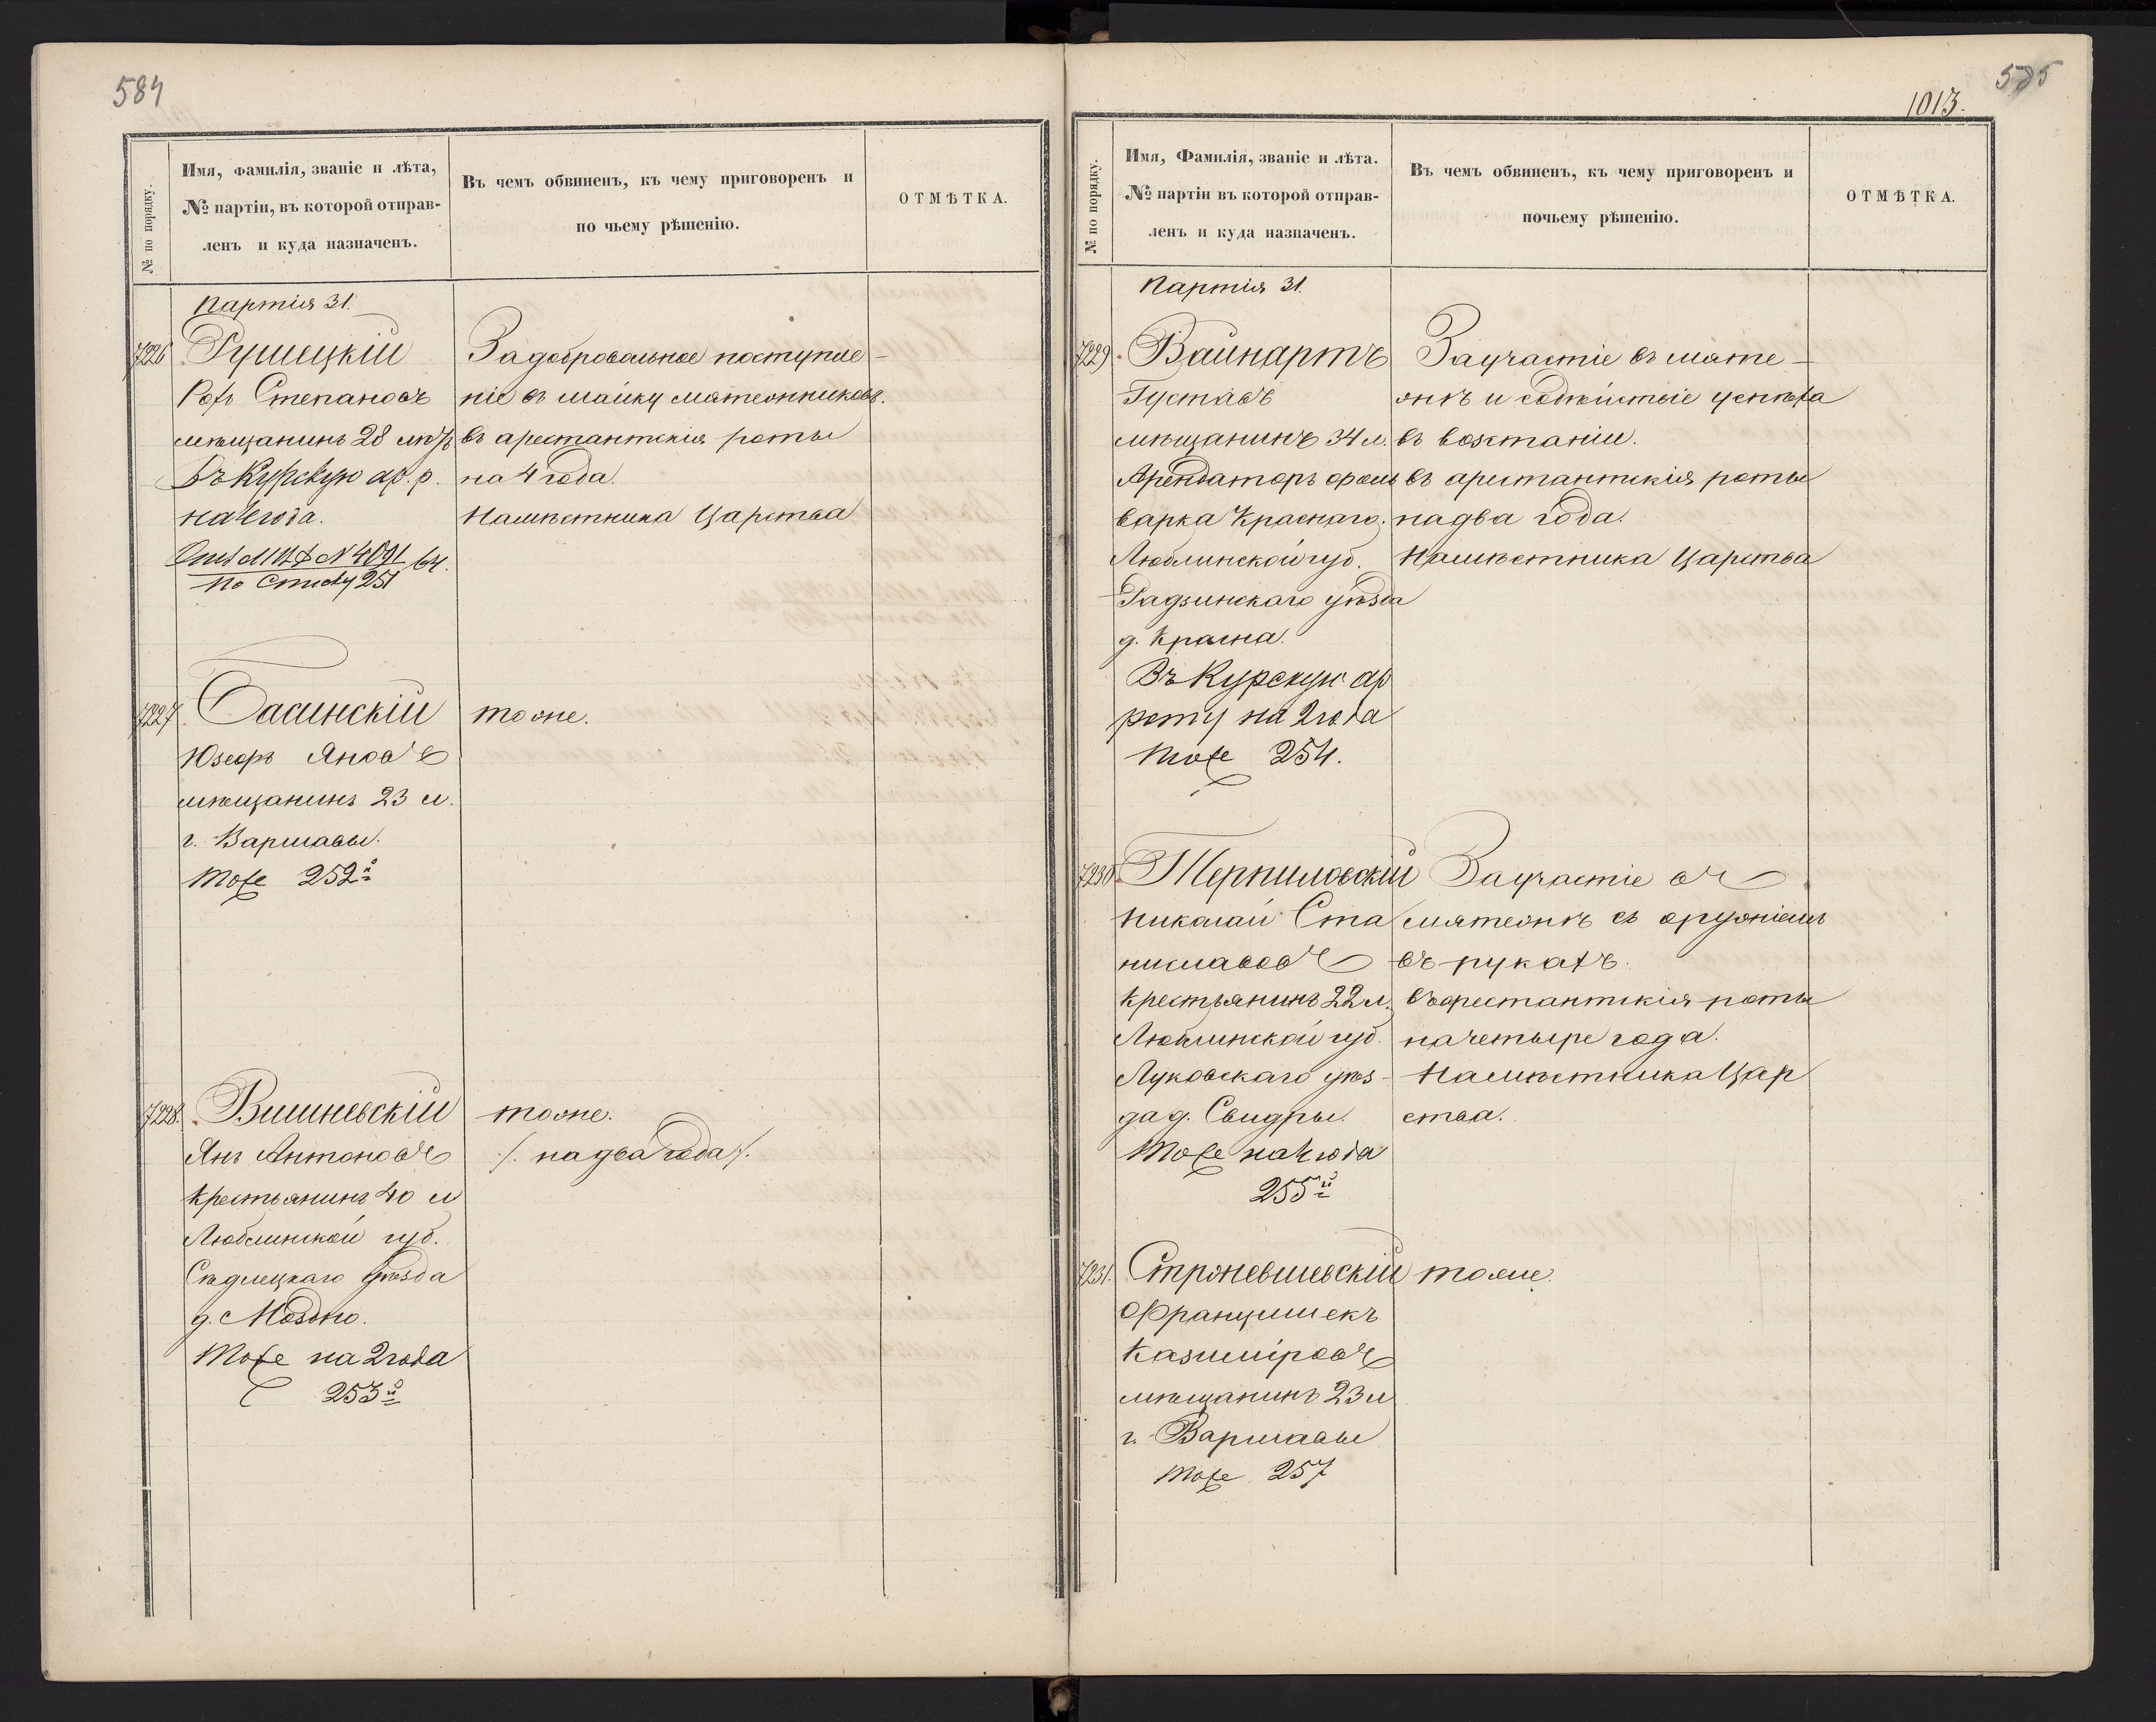 584
№ по порядку.
Имя, фамилія, званіе и лѣта,
№ партіи, въ которой отправ-
ленъ и куда назначенъ.
Въ чемъ обвиненъ, къ чему приговоренъ и
по чьему рѣшенію.
ОТМѢТКА.
Партія 31.
7226
Рушецкій
Рохъ Степановъ
мѣщанинъ 28 лѣтъ
Въ Курскую ар. р.
на 4 года.
№ 4091 / 64.
По списку 251
За добровольное поступле-
ніе въ шайку мятежниковъ.
въ арестантскія роты
на 4 года.
Намѣстника Царства
7227
Басинскій
Юзефъ Яновъ
мѣщанинъ 23 л.
г. Варшавы.
Тоже 252й
тоже.
7228.
Вишневскій
Янъ Антоновъ
крестьянинъ 40 л
Люблинской губ.
Сѣдлецкаго уѣзда
д.
Тоже на 2 года
253й
тоже.
/. на два года /.
585
1013.
№ по порядку.
Имя, Фамилія, званіе и лѣта.
№ партіи въ которой отправ-
ленъ и куда назначенъ.
Въ чемъ обвиненъ, къ чему приговоренъ и
почьему рѣшенію.
ОТМѢТКА.
Партія 31.
7229.
Вайнартъ
Густавъ
мѣщанинъ 34 л.
Арендаторъ фоль
варка Краснаго.
Люблинской губ.
Радзинскаго уѣзда
д. Красна.
Въ Курскую ар
роту на 2 года
Тоже 254.
За участіе въ мяте-
жѣ и содѣйствіе успѣха
въ возстаніи.
въ арестантскія роты
на два года.
Намѣстника Царства
7230.
Терпиловскій
Николай Ста
ниславовъ
крестьянинъ 22 л.
Люблинской губ.
Луковскаго уѣз-
да д. Свидры.
Тоже на 4 года
255й
За участіе въ
мятежѣ съ оружіемъ
въ рукахъ.
въ арестантскія роты
на четыре года.
Намѣстника Цар
ства.
7231.
Стржешевшевскій
Францишекъ
Казиміровъ
мѣщанинъ 23 л
г. Варшавы
Тоже 257
тоже.